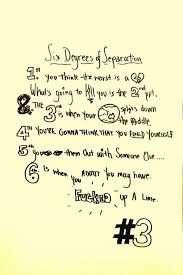 Six Degrees of Separation
1st you think the worst is a
What's going to kill you is the 2nd part.
& THE
3 is when your splits down
the middle.
4TH YOU'RE GONNA THINK THAT YOU FIXED YOURSELF
5th you them Out with Someone Else....
6 is when you ADMIT You may have
Fucked up A Little.
#3